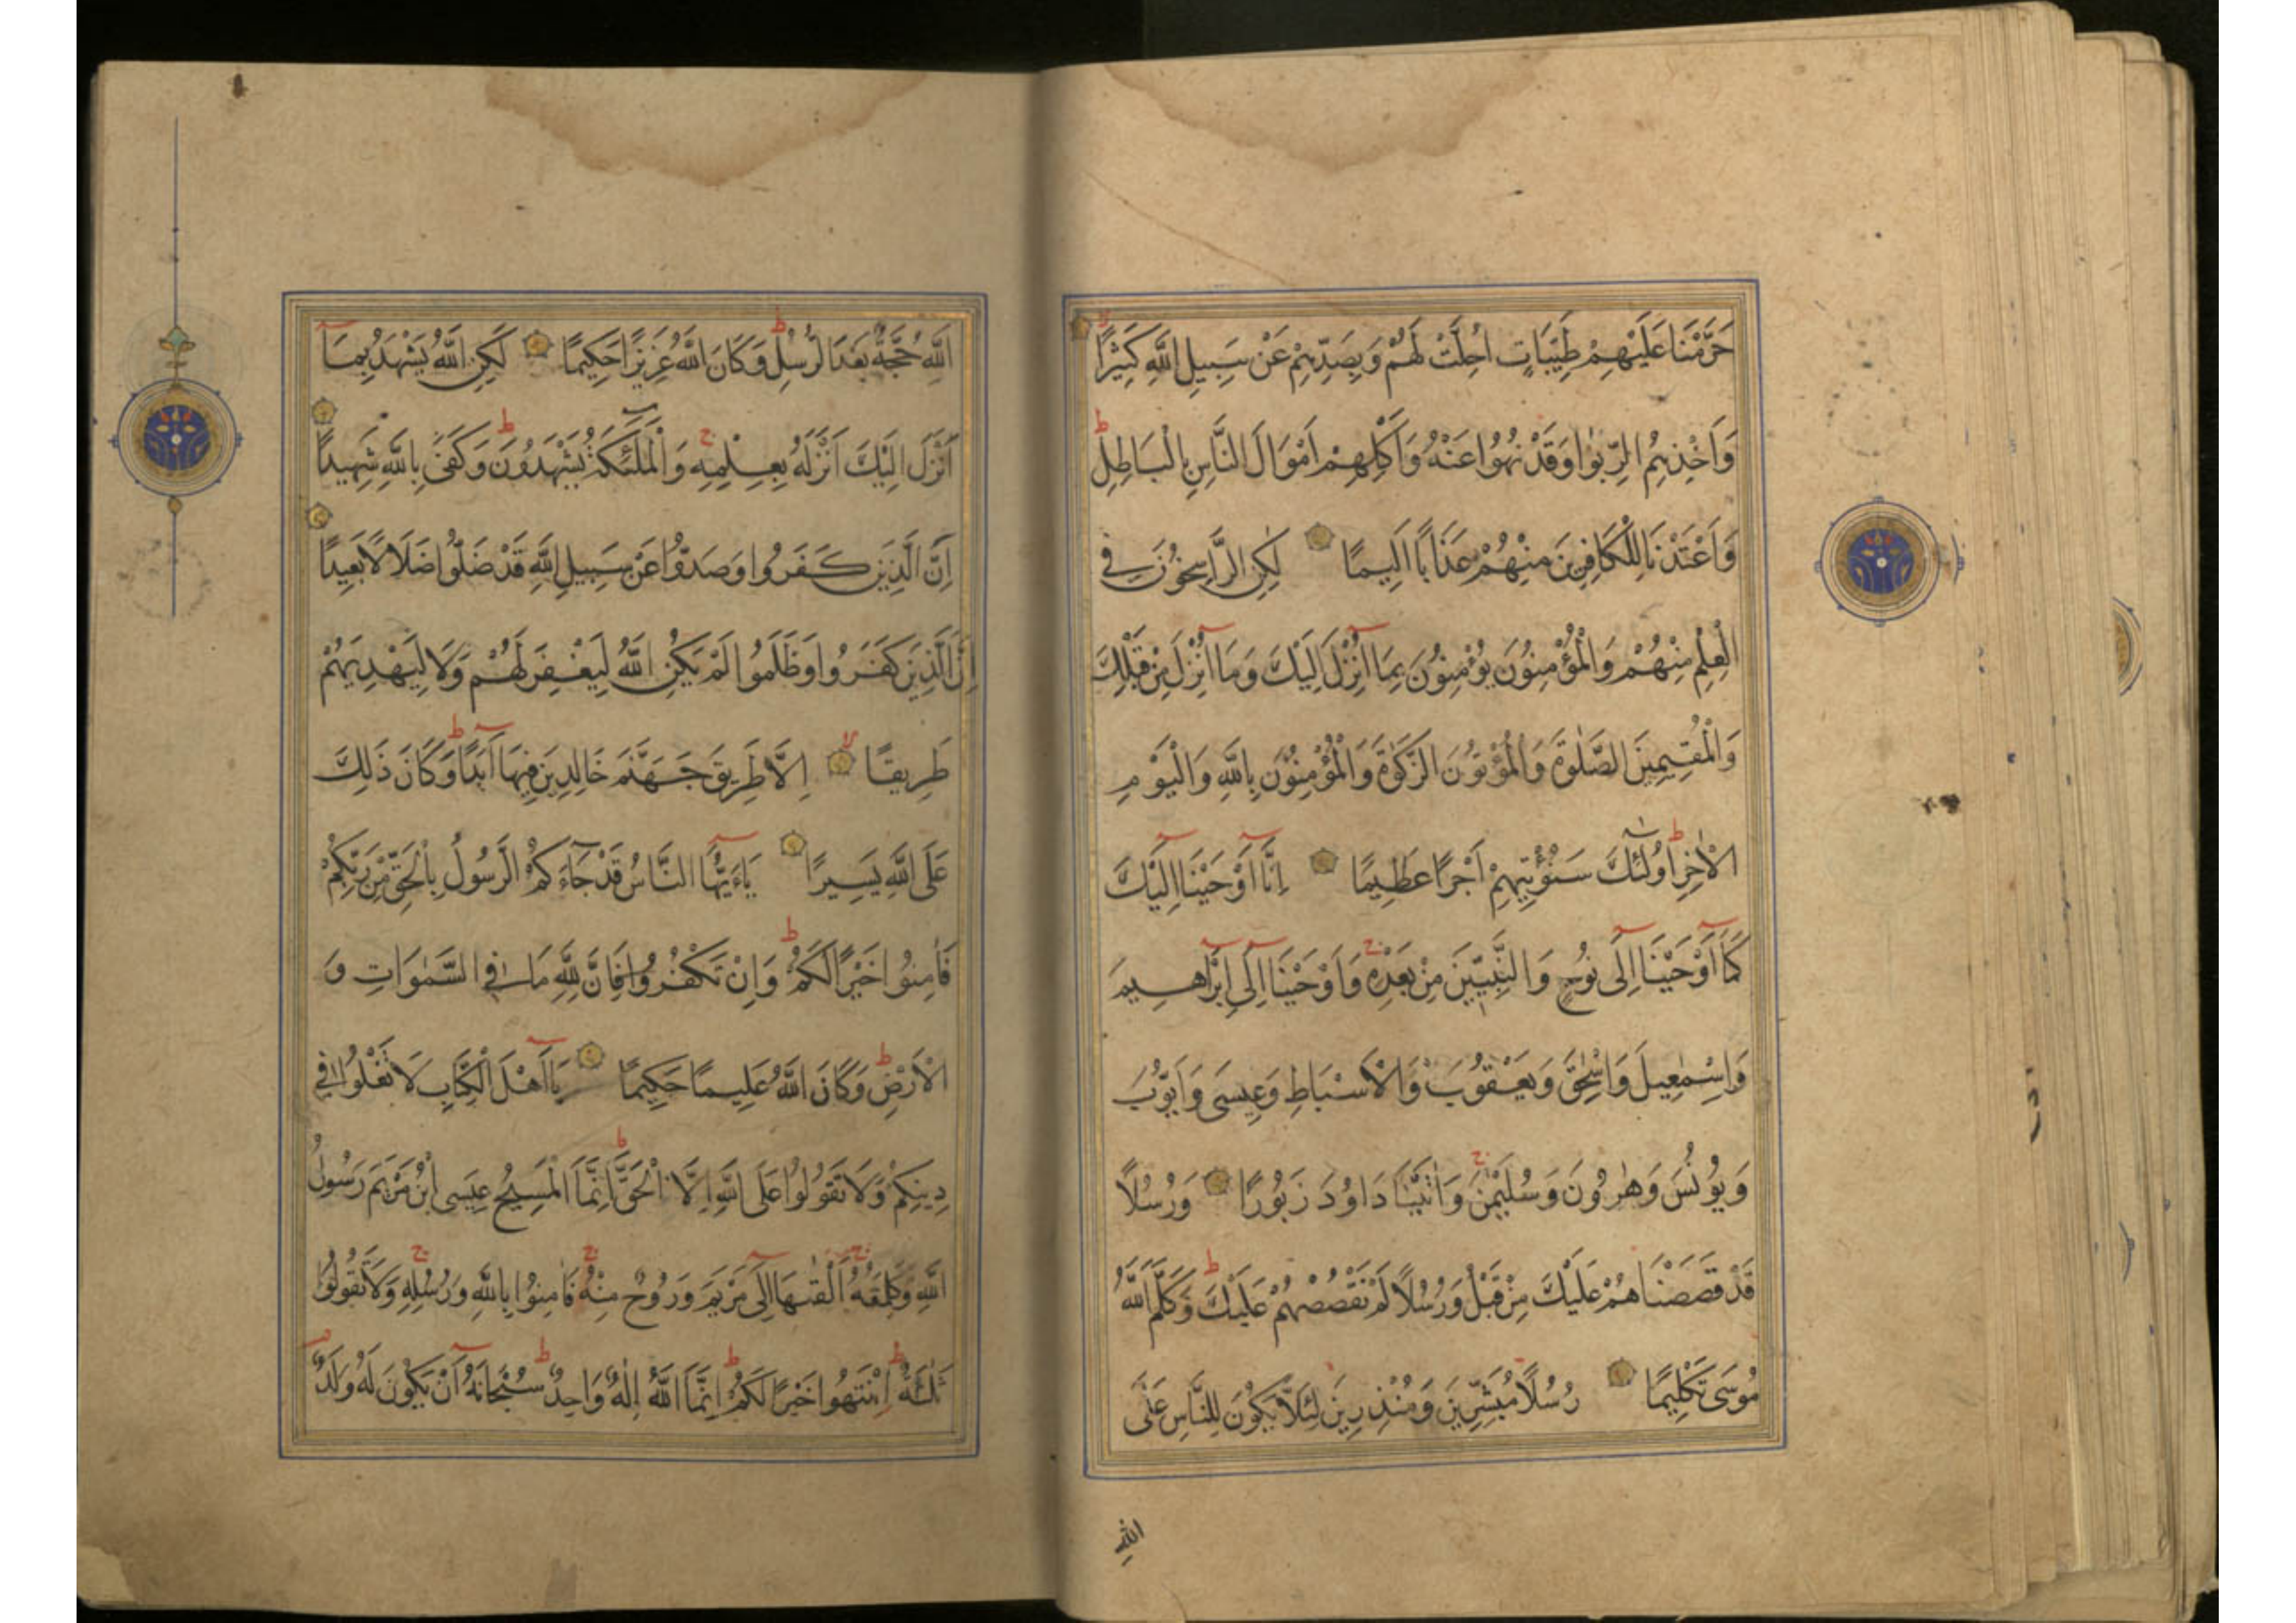 حَرَّمْنَا عَلَيْهِمْ طَيِّبَاتٍ اُحِلَّتْ لَهُمْ وَبِصَدِّهِمْ عَنْ سَبِيلِ اللَّهِ كَثِيرًا
وَاَخْذِهِمُ الرِّبٰوا وَقَدْ نُهُوا عَنْهُ وَاَكْلِهِمْ اَمْوَالَ النَّاسِ بِالْبَاطِلِ
وَاَعْتَدْنَا لِلْكَافِرِينَ مِنْهُمْ عَذَابًا اَلِيمًا لٰكِنِ الرَّاسِخُونَ فِي
الْعِلْمِ مِنْهُمْ وَالْمُؤْمِنُونَ يُؤْمِنُونَ بِمَا اُنْزِلَ اِلَيْكَ وَمَا اُنْزِلَ مِنْ قَبْلِكَ
وَالْمُقِيمِينَ الصَّلٰوةَ وَالْمُؤْتُونَ الزَّكٰوةَ وَالْمُؤْمِنُونَ بِاللَّهِ وَالْيَوْمِ
الْاٰخِرِ اُولٰئِكَ سَنُؤْتِيهِمْ اَجْرًا عَظِيمًا اِنَّا اَوْحَيْنَا اِلَيْكَ
كَمَا اَوْحَيْنَا اِلٰى نُوحٍ وَالنَّبِيِّينَ مِنْ بَعْدِهِ وَاَوْحَيْنَا اِلٰى اِبْرٰاهِيمَ
وَاِسْمٰعِيلَ وَاِسْحٰقَ وَيَعْقُوبَ وَالْاَسْبَاطِ وَعِيسَى وَاَيُّوبَ
وَيُونُسَ وَهٰرُونَ وَسُلَيْمٰنَ وَاٰتَيْنَا دَاوُدَ زَبُورًا وَرُسُلًا
قَدْ قَصَصْنَاهُمْ عَلَيْكَ مِنْ قَبْلُ وَرُسُلًا لَمْ نَقْصُصْهُمْ عَلَيْكَ وَكَلَّمَ اللَّهُ
مُوسَى تَكْلِيمًا رُسُلًا مُبَشِّرِينَ وَمُنْذِرِينَ لِئَلَّا يَكُونَ لِلنَّاسِ عَلَى
اللّٰهِ
اللَّهِ حُجَّةٌ بَعْدَ الرُّسُلِ وَكَانَ اللَّهُ عَزِيزًا حَكِيمًا لٰكِنِ اللَّهُ يَشْهَدُ بِمَا
اَنْزَلَ اِلَيْكَ اَنْزَلَهُ بِعِلْمِهِ وَالْمَلٰئِكَةُ يَشْهَدُونَ وَكَفٰى بِاللَّهِ شَهِيدًا
اِنَّ الَّذِينَ كَفَرُوا وَصَدُّوا عَنْ سَبِيلِ اللَّهِ قَدْ ضَلُّوا ضَلَالًا بَعِيدًا
اِنَّ الَّذِينَ كَفَرُوا وَظَلَمُوا لَمْ يَكُنِ اللَّهُ لِيَغْفِرَ لَهُمْ وَلَا لِيَهْدِيَهُمْ
طَرِيقًا اِلَّا طَرِيقَ جَهَنَّمَ خَالِدِينَ فِيهَا اَبَدًا وَكَانَ ذَلِكَ
عَلَى اللَّهِ يَسِيرًا يَاءَيُّهَا النَّاسُ قَدْ جَاءَكُمُ الرَّسُولُ بِالْحَقِّ مِنْ رَبِّكُمْ
فَاٰمِنُوا خَيْرًا لَكُمْ وَاِنْ تَكْفُرُوا فَاِنَّ لِلَّهِ مَا فِي السَّمٰوَاتِ وَ
الْاَرْضِ وَكَانَ اللَّهُ عَلِيمًا حَكِيمًا يَا اَهْلَ الْكِتَابِ لَا تَغْلُوا فِي
دِينِكُمْ وَلَا تَقُولُوا عَلَى اللَّهِ اِلَّا الْحَقَّ اِنَّمَا الْمَسِيحُ عِيسَى ابْنُ مَرْيَمَ رَسُولُ
اللَّهِ وَكَلِمَتُهُ اَلْقٰىهَا اِلٰى مَرْيَمَ وَرُوحٌ مِنْهُ فَاٰمِنُوا بِاللَّهِ وَرُسُلِهِ وَلَا تَقُولُوا
ثَلٰثَةٌ اِنْتَهُوا خَيْرًا لَكُمْ اِنَّمَا اللَّهُ اِلٰهٌ وَاحِدٌ سُبْحَانَهُ اَنْ يَكُونَ لَهُ وَلَدٌ